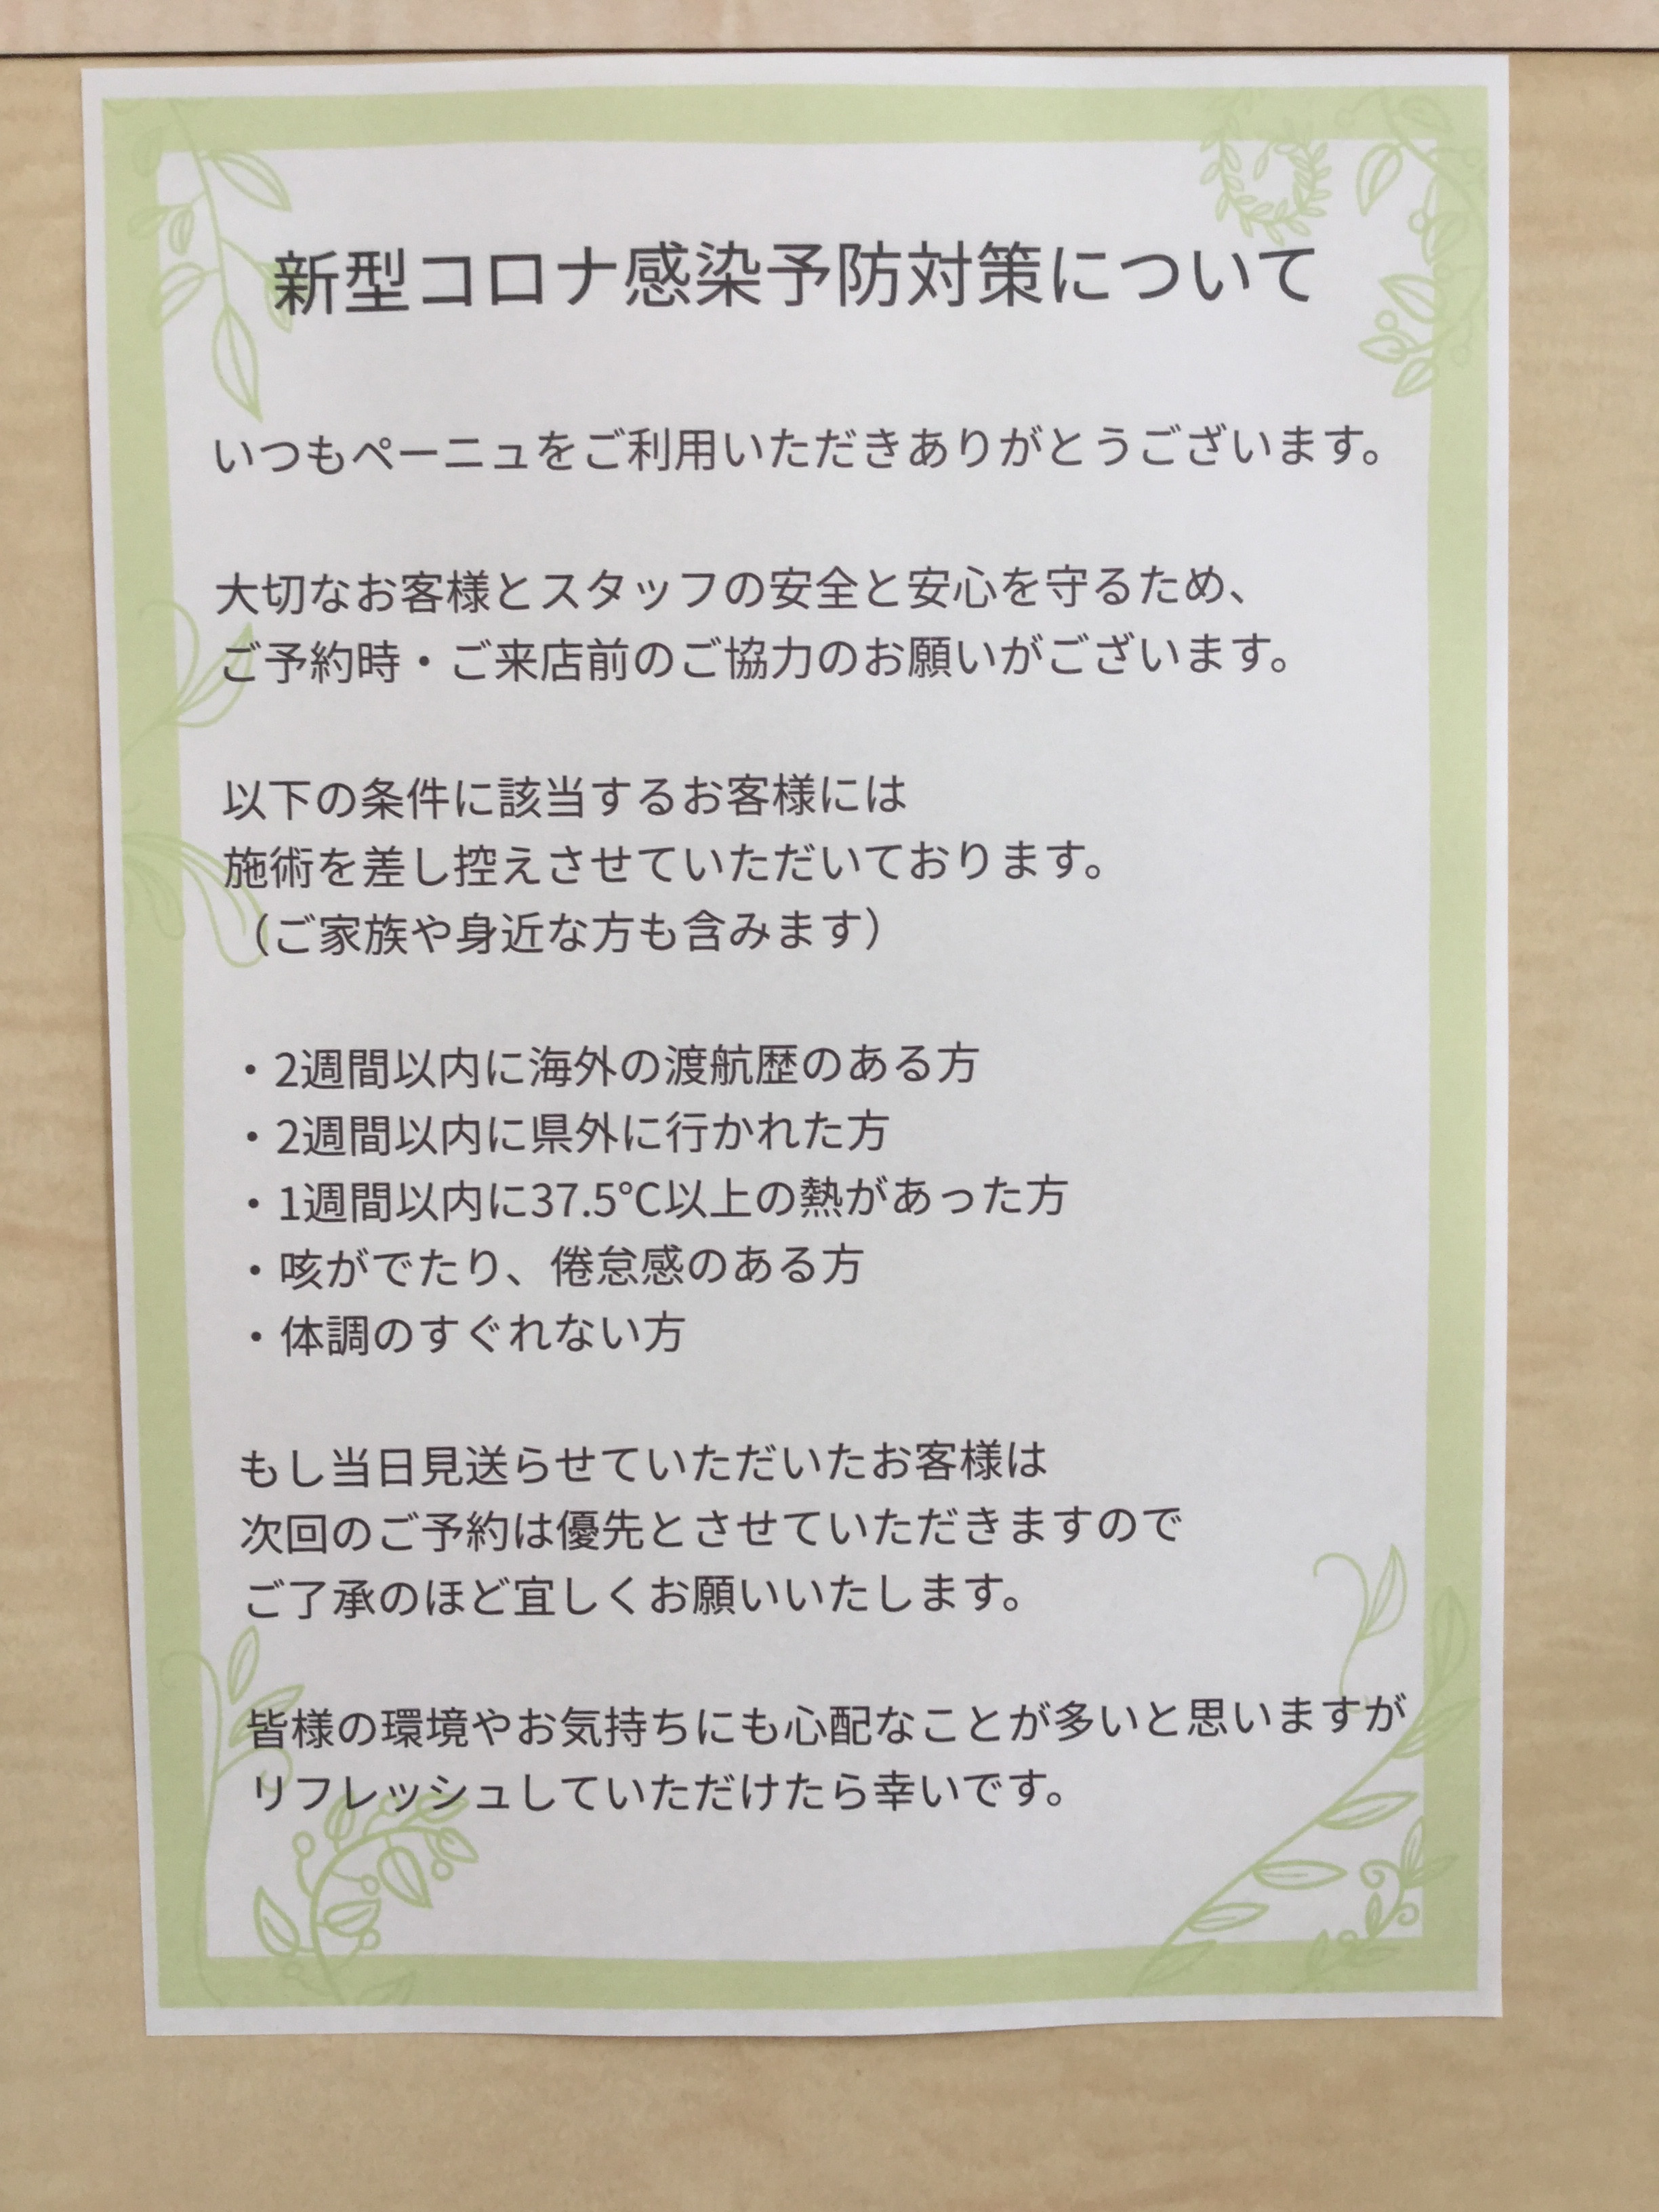 新型コロナ感染予防対策について
いつもペーニュをご利用いただきありがとうございます。
大切なお客様とスタッフの安全と安心を守るため、
ご予約時・ご来店前のご協力のお願いがございます。
以下の条件に該当するお客様には
施術を差し控えさせていただいております。
（ご家族や身近な方も含みます）
・2週間以内に海外の渡航歴のある方
・2週間以内に県外に行かれた方
・1週間以内に37.5℃以上の熱があった方
・咳がでたり、倦怠感のある方
・体調のすぐれない方
もし当日見送らせていただいたお客様は
次回のご予約は優先とさせていただきますので
ご了承のほど宜しくお願いいたします。
皆様の環境やお気持ちにも心配なことが多いと思いますが
リフレッシュしていただけたら幸いです。